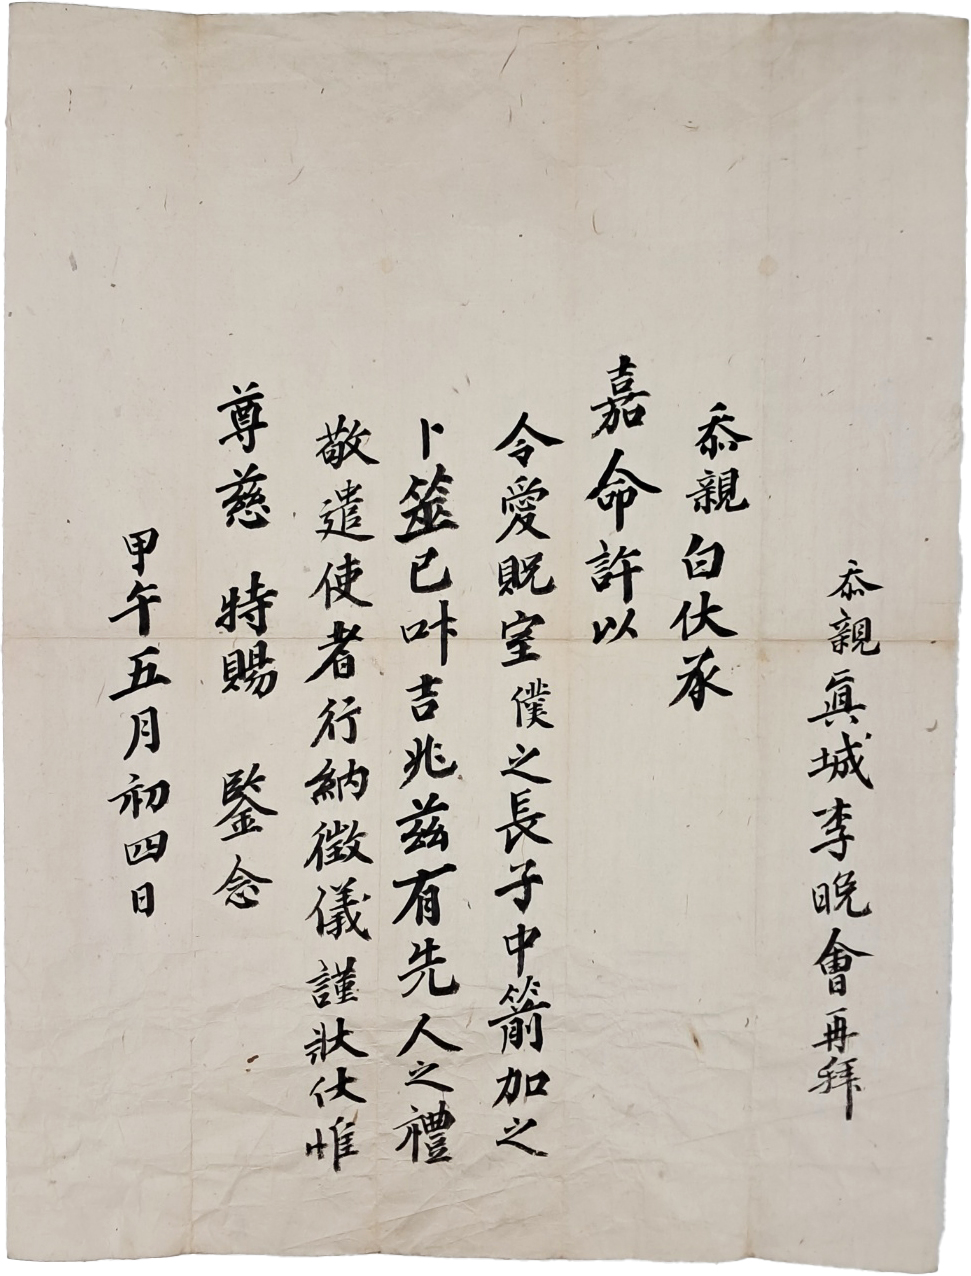 忝親眞城李晩會再拜
忝親白伏承
嘉命許以
令愛貺室僕之長子中箭加之
卜筮已叶吉兆兹有先人之禮
敬遣使者行納徵儀謹狀伏惟
尊慈 特賜 鑒念
甲午五月初四日